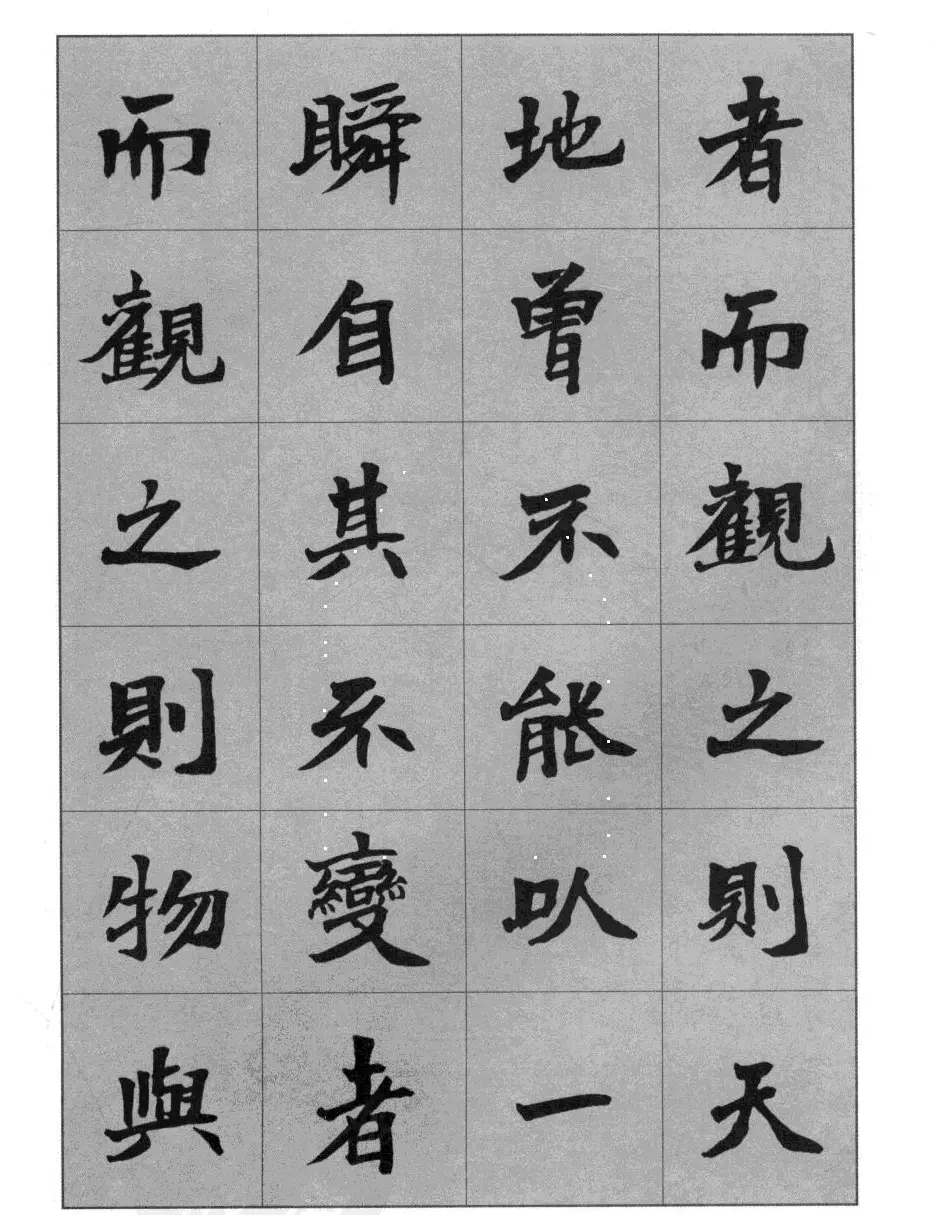 者而觀之則天
地曾不能以一
瞬自其不變者
而觀之則物與